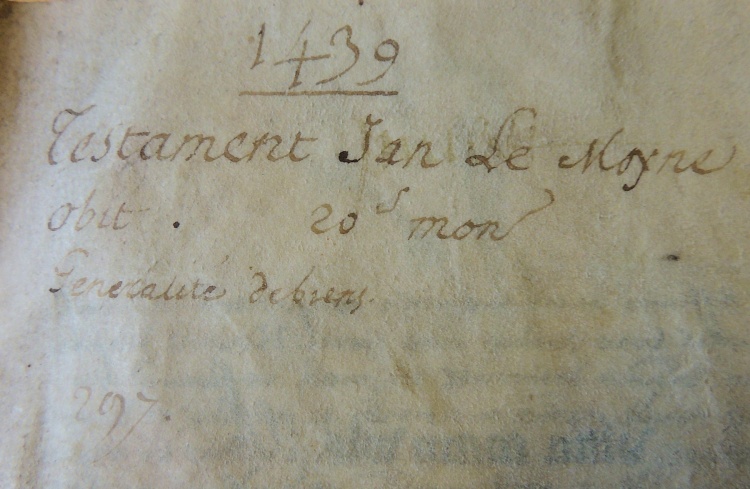 1439
Testament Jan Le Moyne
obit . 20 s mon
Generalité de biens
297